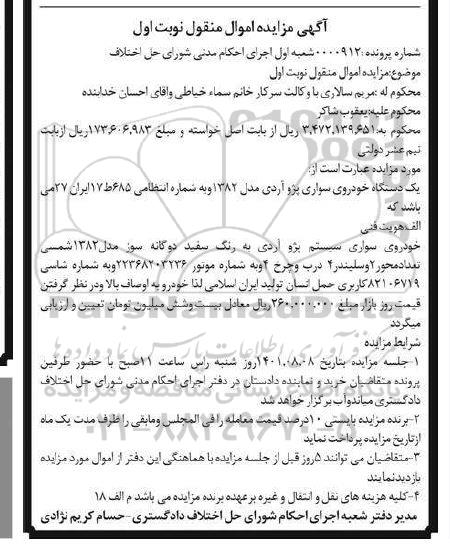 آگهی مزایده اموال منقول نوبت اول
شماره پرونده:۰۰۰۰۹۱۲شعبه اول اجرای احکام مدنی شورای حل اختلاف
موضوع:مزایده اموال منقول نوبت اول
محکوم له :مریم سالاری با وکالت سرکار خانم سماء خیاطی واقای احسان خدابنده
محکوم علیه:یعقوب شاکر
محکوم به:۳،۴۷۲،۱۳۹،۶۵۱ ریال از بابت اصل خواسته و مبلغ ۱۷۳،۶۰۶،۹۸۳ریال ازبابت
نیم عشر دولتی
مورد مزایده عبارت است از:
یک دستگاه خودروی سواری پژو آردی مدل ۱۳۸۲وبه شماره انتظامی ۶۸۵ط۱۷ایران ۲۷می
باشد که
الف:هویت فنی
خودروی سواری سیستم پژو آردی به رنگ سفید دوگانه سوز مدل۱۳۸۲شمسی
تعدادمحور۲وسلیندر۴ درب وچرخ ۴وبه شماره موتور ۲۲۳۶۸۲۰۳۲۳۶وبه شماره شاسی
۸۲۱۰۶۷۱۹کاربری حمل انسان تولید ایران اسلامی لذا خودرو به اوصاف بالا ودر نظر گرفتن
قیمت روز بازار مبلغ ۲۶۰،۰۰۰،۰۰۰ریال معادل بیست وشش میلیون تومان تعیین و ارزیابی
میگردد
شرایط مزایده
۱-جلسه مزایده بتاریخ ۱۴۰۱،۰۸،۰۸روز شنبه راس ساعت ۱۱صبح با حضور طرفین
پرونده متقاضیان خرید و نماینده دادستان در دفتر اجرای احکام مدنی شورای حل اختلاف
دادگستری میاندوآب برگزار خواهد شد
۲-برنده مزایده بایستی ۱۰درصد قیمت معامله را فی المجلس ومابقی را ظرف مدت یک ماه
ازتاریخ مزایده پرداخت نماید
۳-متقاضیان می توانند ۵روز قبل از جلسه مزایده با هماهنگی این دفتر از اموال مورد مزایده
بازدیدنمایند
۴-کلیه هزینه های نقل و انتقال و غیره بر عهده برنده مزایده می باشد م الف ۱۸
مدیر دفتر شعبه اجرای احکام شورای حل اختلاف دادگستری-حسام کریم نژادی